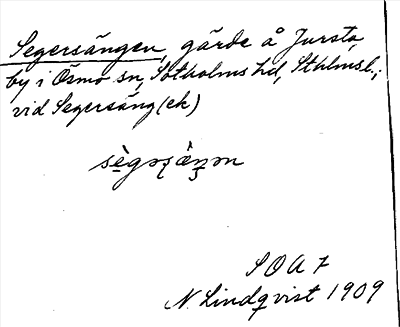 Segersängen, gärde å Jursta
by i Ösmo sn, Sotholms hd, Sthlmsl.;
vid Segersäng (ek)
N. Lindqvist 1909